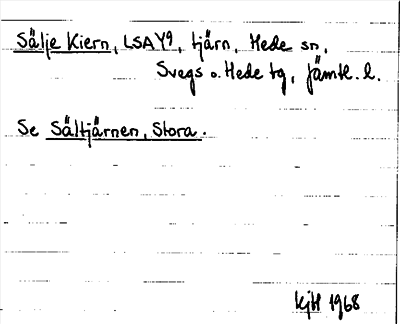 Sälje Kiern, LSA Y9, tjärn, Hede sn,
Svegs o. Hede tg, Jämtl. l.
Se Sältjärnen, Stora.
KjH 1968